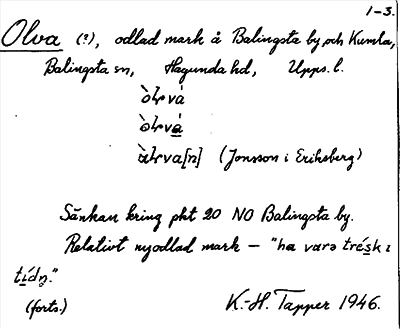 1-3.
Olva (?), odlad mark å Balingsta by och Kumla,
Balingsta sn, Hagunda hd, Upps. l.
Sänkan kring pkt 20 NO Balingsta by.
Relativt nyodlad mark – "ha varə trésk ı
(Jonsson i Eriksberg)
(forts.) K.-H. Tapper 1946.